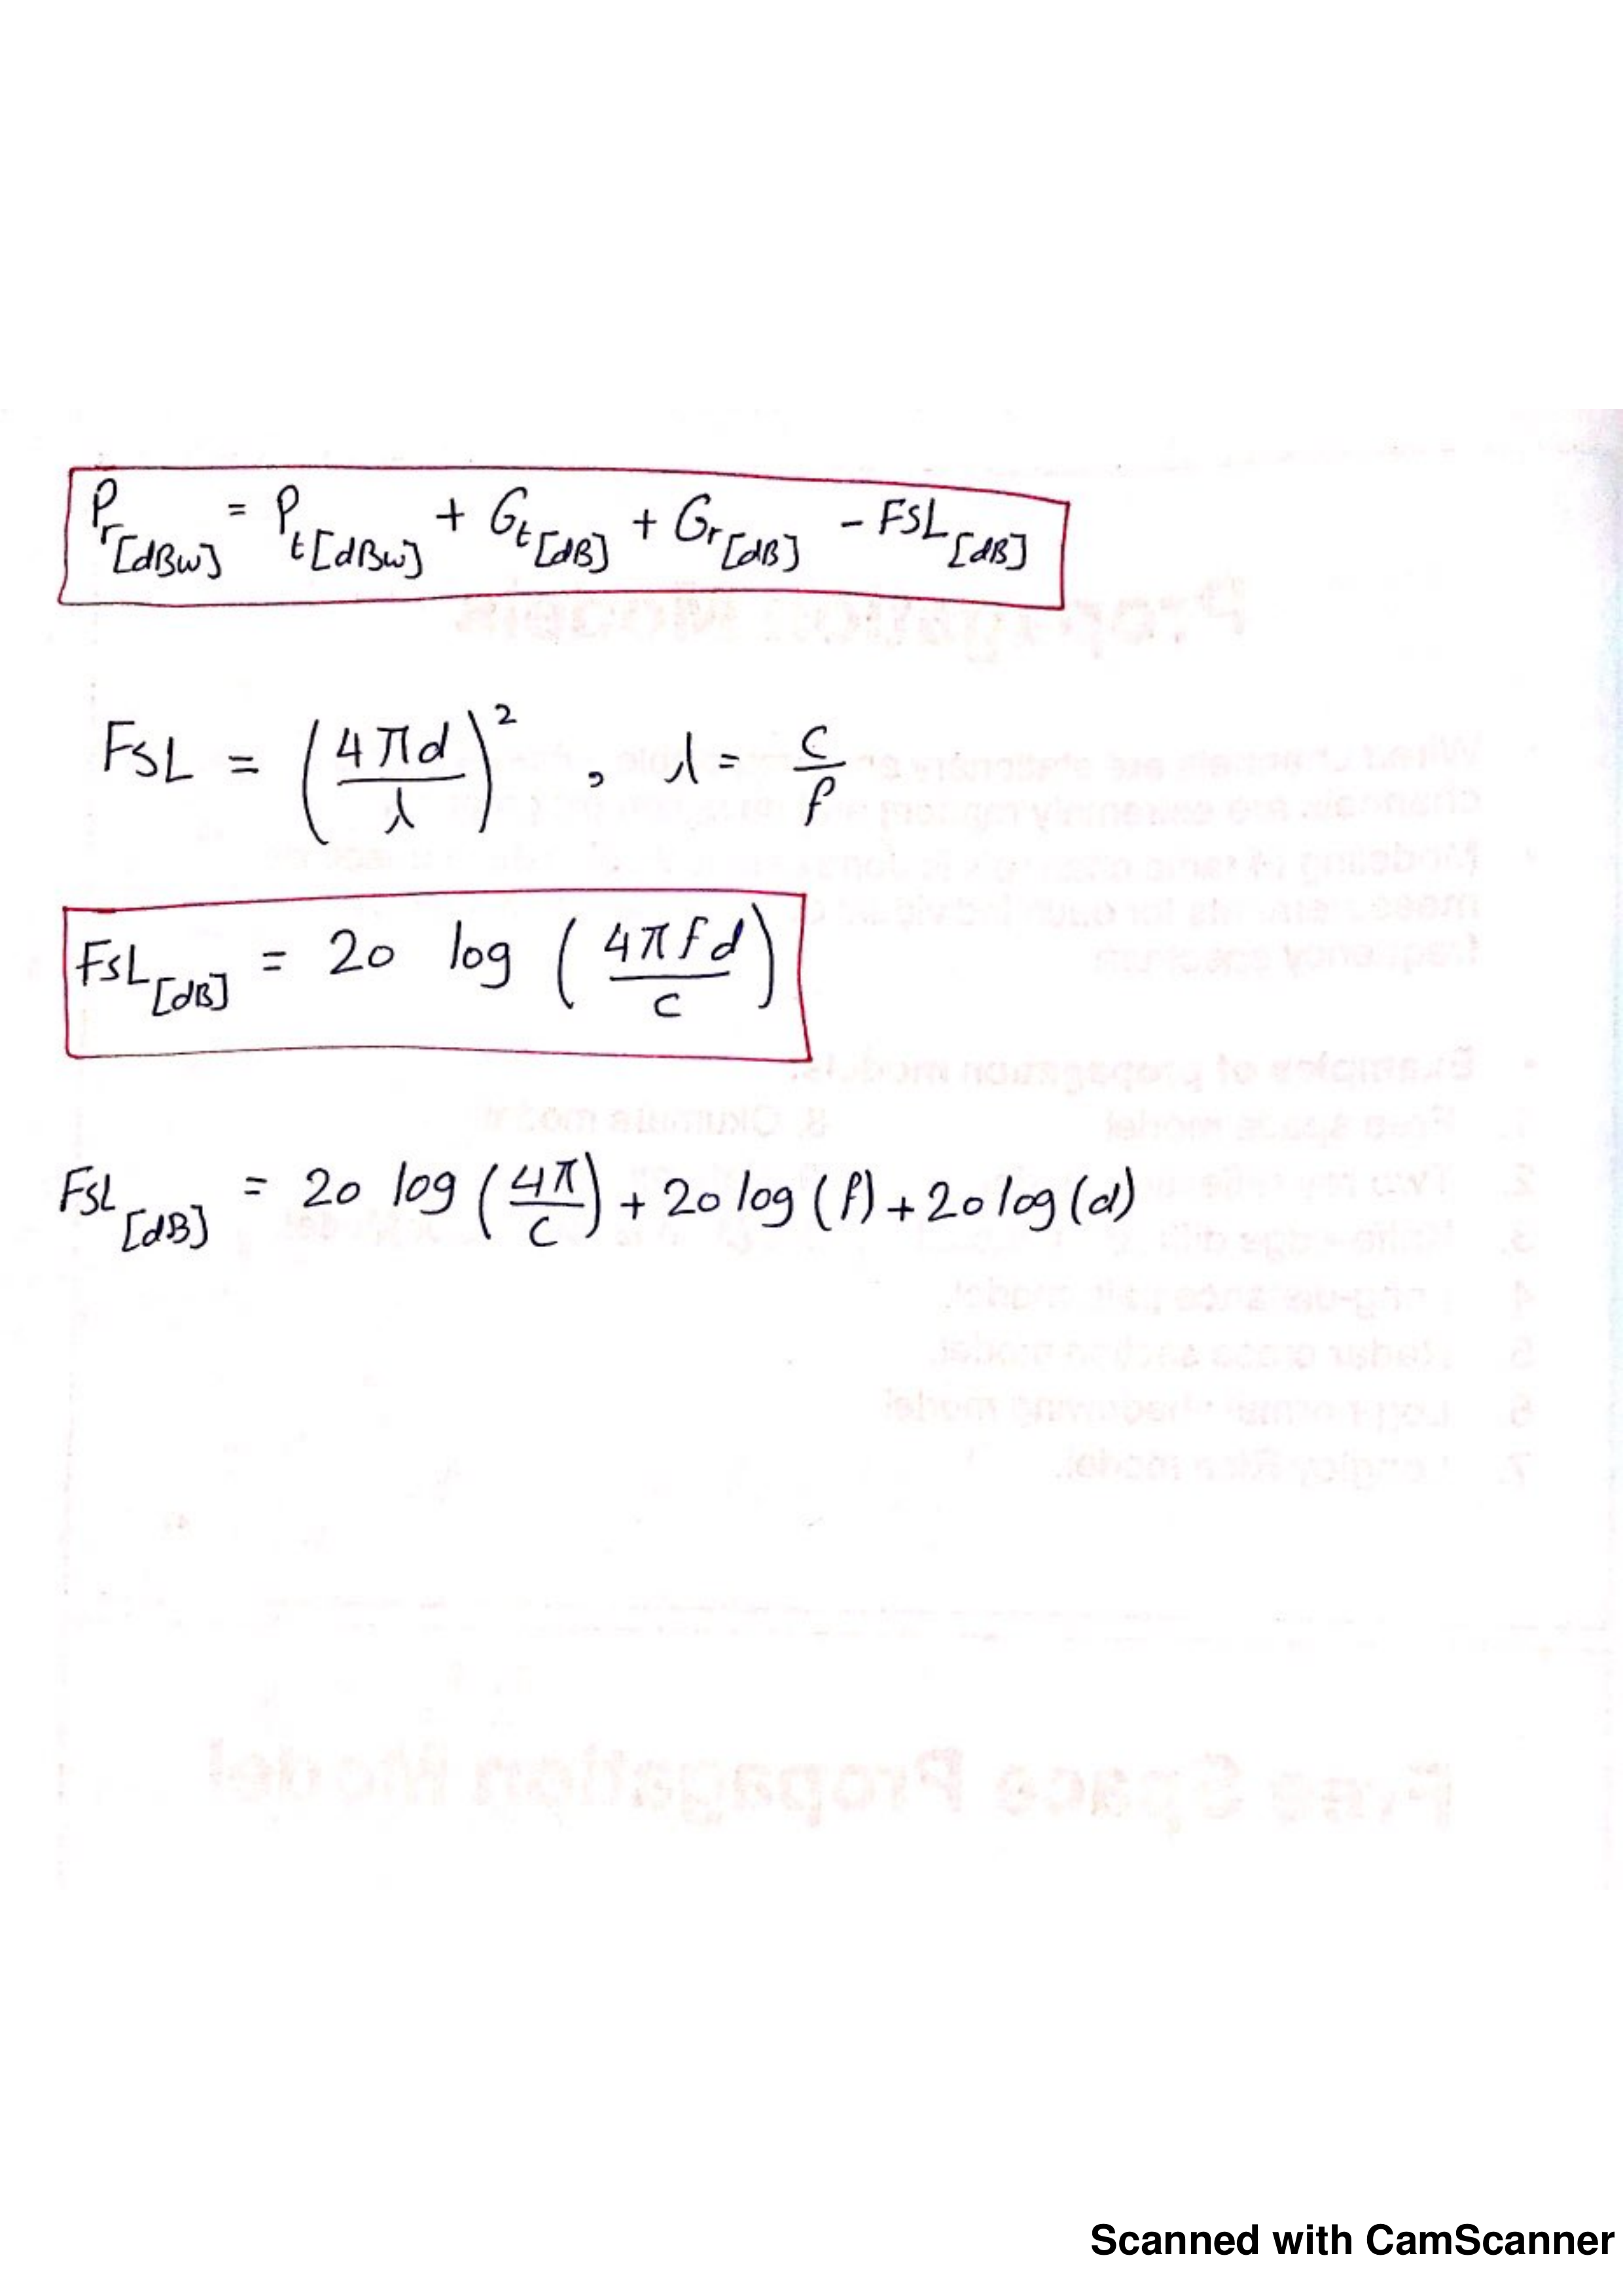 P_r[dBw] = P_t[dBw] + G_t[dB] + G_r[dB] - FSL[dB]
FSL = (4πd/λ)² , λ = c/f
FSL[dB] = 20 log (4πfd/c)
FSL[dB] = 20 log (4π/c) + 20 log (f) + 20 log (d)
Scanned with CamScanner